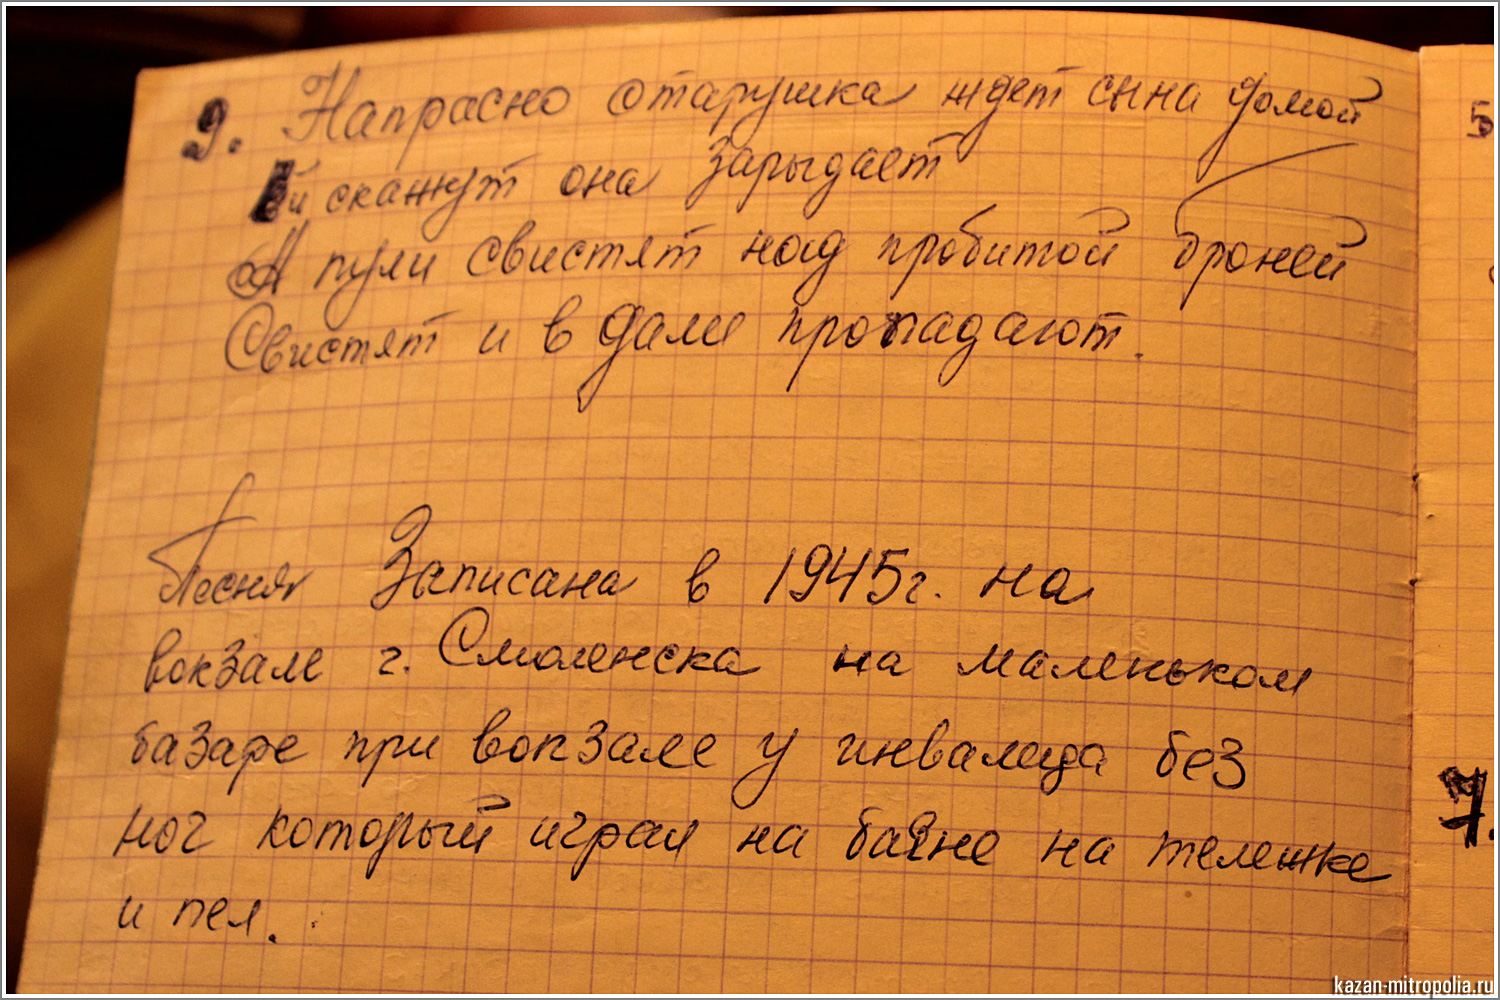 9. Напрасно старушка ждет сына домой
Ей скажут она зарыдает
А пули свистят над пробитой броней
Свистят и в дали пропадают.
Песня Записана в 1945г. на
вокзале г. Смоленска на маленьком
базаре при вокзале у инвалида без
ног который играл на баяне на тележке
и пел.
5
7.
kazan-mitropolia.ru